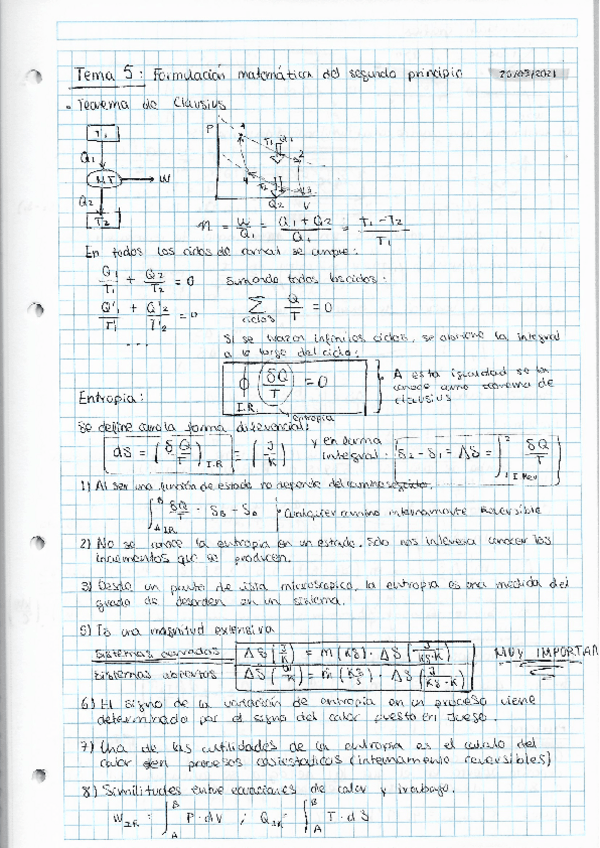 Tema 5: Formulación matemática del segundo principio 20/05/2021
• Teorema de Clausius
T1
Q1
MT → W
Q2
T2
P
1
T1 Q1
2
4
T2
3
Q2 V
n = W/Q1 = (Q1 + Q2)/Q1 = (T1 - T2)/T1
En todos los ciclos de carnot se cumple:
Q1/T1 + Q2/T2 = 0 Sumando todos los ciclos:
Q'1/T'1 + Q'2/T'2 = 0 ∑ciclos Q/T = 0
...
Si se trazan infinitos ciclos, se obtiene la integral
a lo largo del ciclo:
∮I.R. (δQ/T) = 0 A esta igualdad se la conoce como teorema de clausius
entropia
Entropia:
Se define como la forma diferencial:
dS = (δQ/T)I.R = (J/K) y en forma integral: S2 - S1 = ΔS = ∫1 2 I Rev δQ/T
1) Al ser una función de estado no depende del camino seguido.
∫A I.R B δQ/T = SB - SA Cualquier camino internamente reversible
2) No se conoce la entropia en un estado. Solo nos interesa conocer los
incrementos que se producen.
3) Desde un punto de vista microscopico, la entropia es una medida del
grado de desorden en un sistema.
5) Es una magnitud extensiva
Sistemas cerrados ΔS (J/K) = m (Kg) · ΔS (J/Kg·K) MUY IMPORTAN
Sistemas abiertos ΔṠ = ṁ · ΔS (J/Kg·K)
6) El signo de la variación de entropia en un proceso viene
determinado por el signo del calor puesto en juego.
7) Una de las utilidades de la entropia es el calculo del
calor en procesos casiestaticos (internamente reversibles)
8) Similitudes entre ecuaciones de calor y trabajo.
WIR = ∫A B P · dV ; QIR = ∫A B T · dS